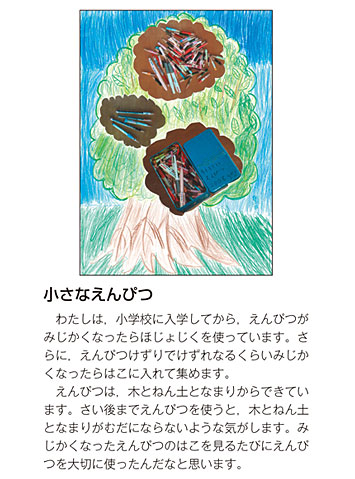 小さなえんぴつ
わたしは，小学校に入学してから，えんぴつが
みじかくなったらほじょじくを使っています。さ
らに，えんぴつけずりでけずれなるくらいみじか
くなったらはこに入れて集めます。
えんぴつは，木とねん土となまりからできてい
ます。さい後までえんぴつを使うと，木とねん土
となまりがむだにならないような気がします。み
じかくなったえんぴつのはこを見るたびにえんぴ
つを大切に使ったんだなと思います。